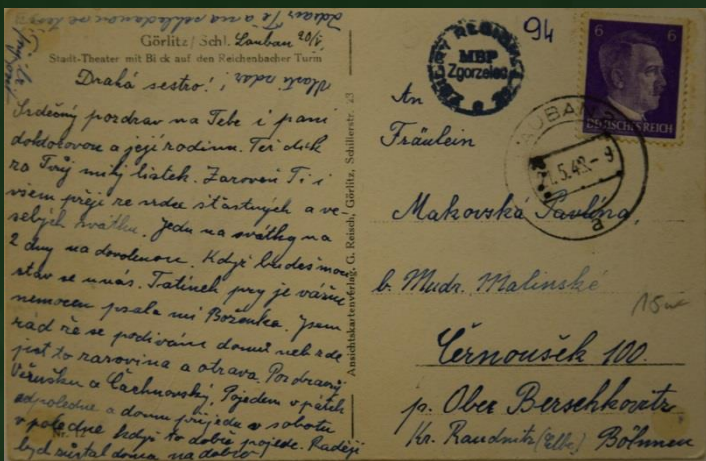 Görlitz / Schl. Lauban 20/V.
Stadt-Theater mit Blick auf den Reichenbacher Turm
Drahá sestro!
Srdečný pozdrav na Tebe i paní
doktorovou a její rodinu. Též dík
za Tvůj milý lístek. Zároveň Ti i
všem přeji ze srdce šťastných a ve-
selých svátků. Jedu na svátky na
2 dny na dovolenou. Když budeš moci
stav se u nás. Tatínek prý je vážně
nemocen psala mi Boženka. Jsem
rád že se podívám domů neb zde
jest to a otrava. Pozdravuj
Věrušku a Čachnovský. Pojedem v pátek
odpoledne a domů přijedu v sobotu
v poledne když to dobře pojede. Raději
bych zůstal doma na dobro
Nr. 12
Ansichtskartenverlag G. Reisch, Görlitz, Schillerstr. 23
MBP
Zgorzelec
94
6 6
DEUTSCHES REICH
LAUBAN
21.5.42-9
An
Fräulein
Makovská Pavlína,
b. Mudr. Malinské
15
Černoušek 100.
p. Ober Berschkovitz
Kr. Raudnitz (Elbe) Böhmen